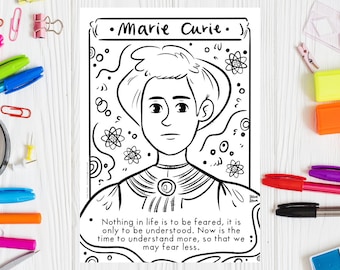 Marie Curie
Nothing in life is to be feared, it is
only to be understood. Now is the
time to understand more, so that we
may fear less.